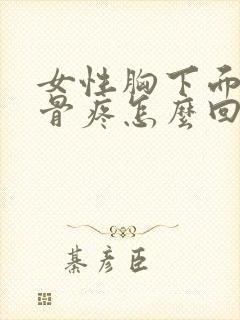 女性胸下而
骨疼怎麼回
綦彦臣